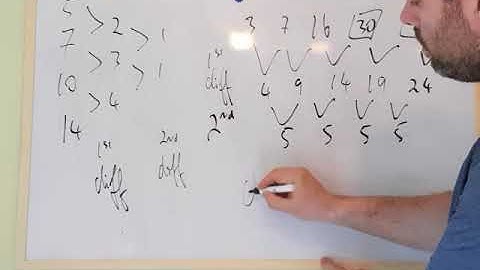 5
7
10
14
> 2
> 3
> 4
> 1
> 1
1st diff
2nd diff
3 7 16 30
1st diff 4 9 14 19 24
2nd 5 5 5 5